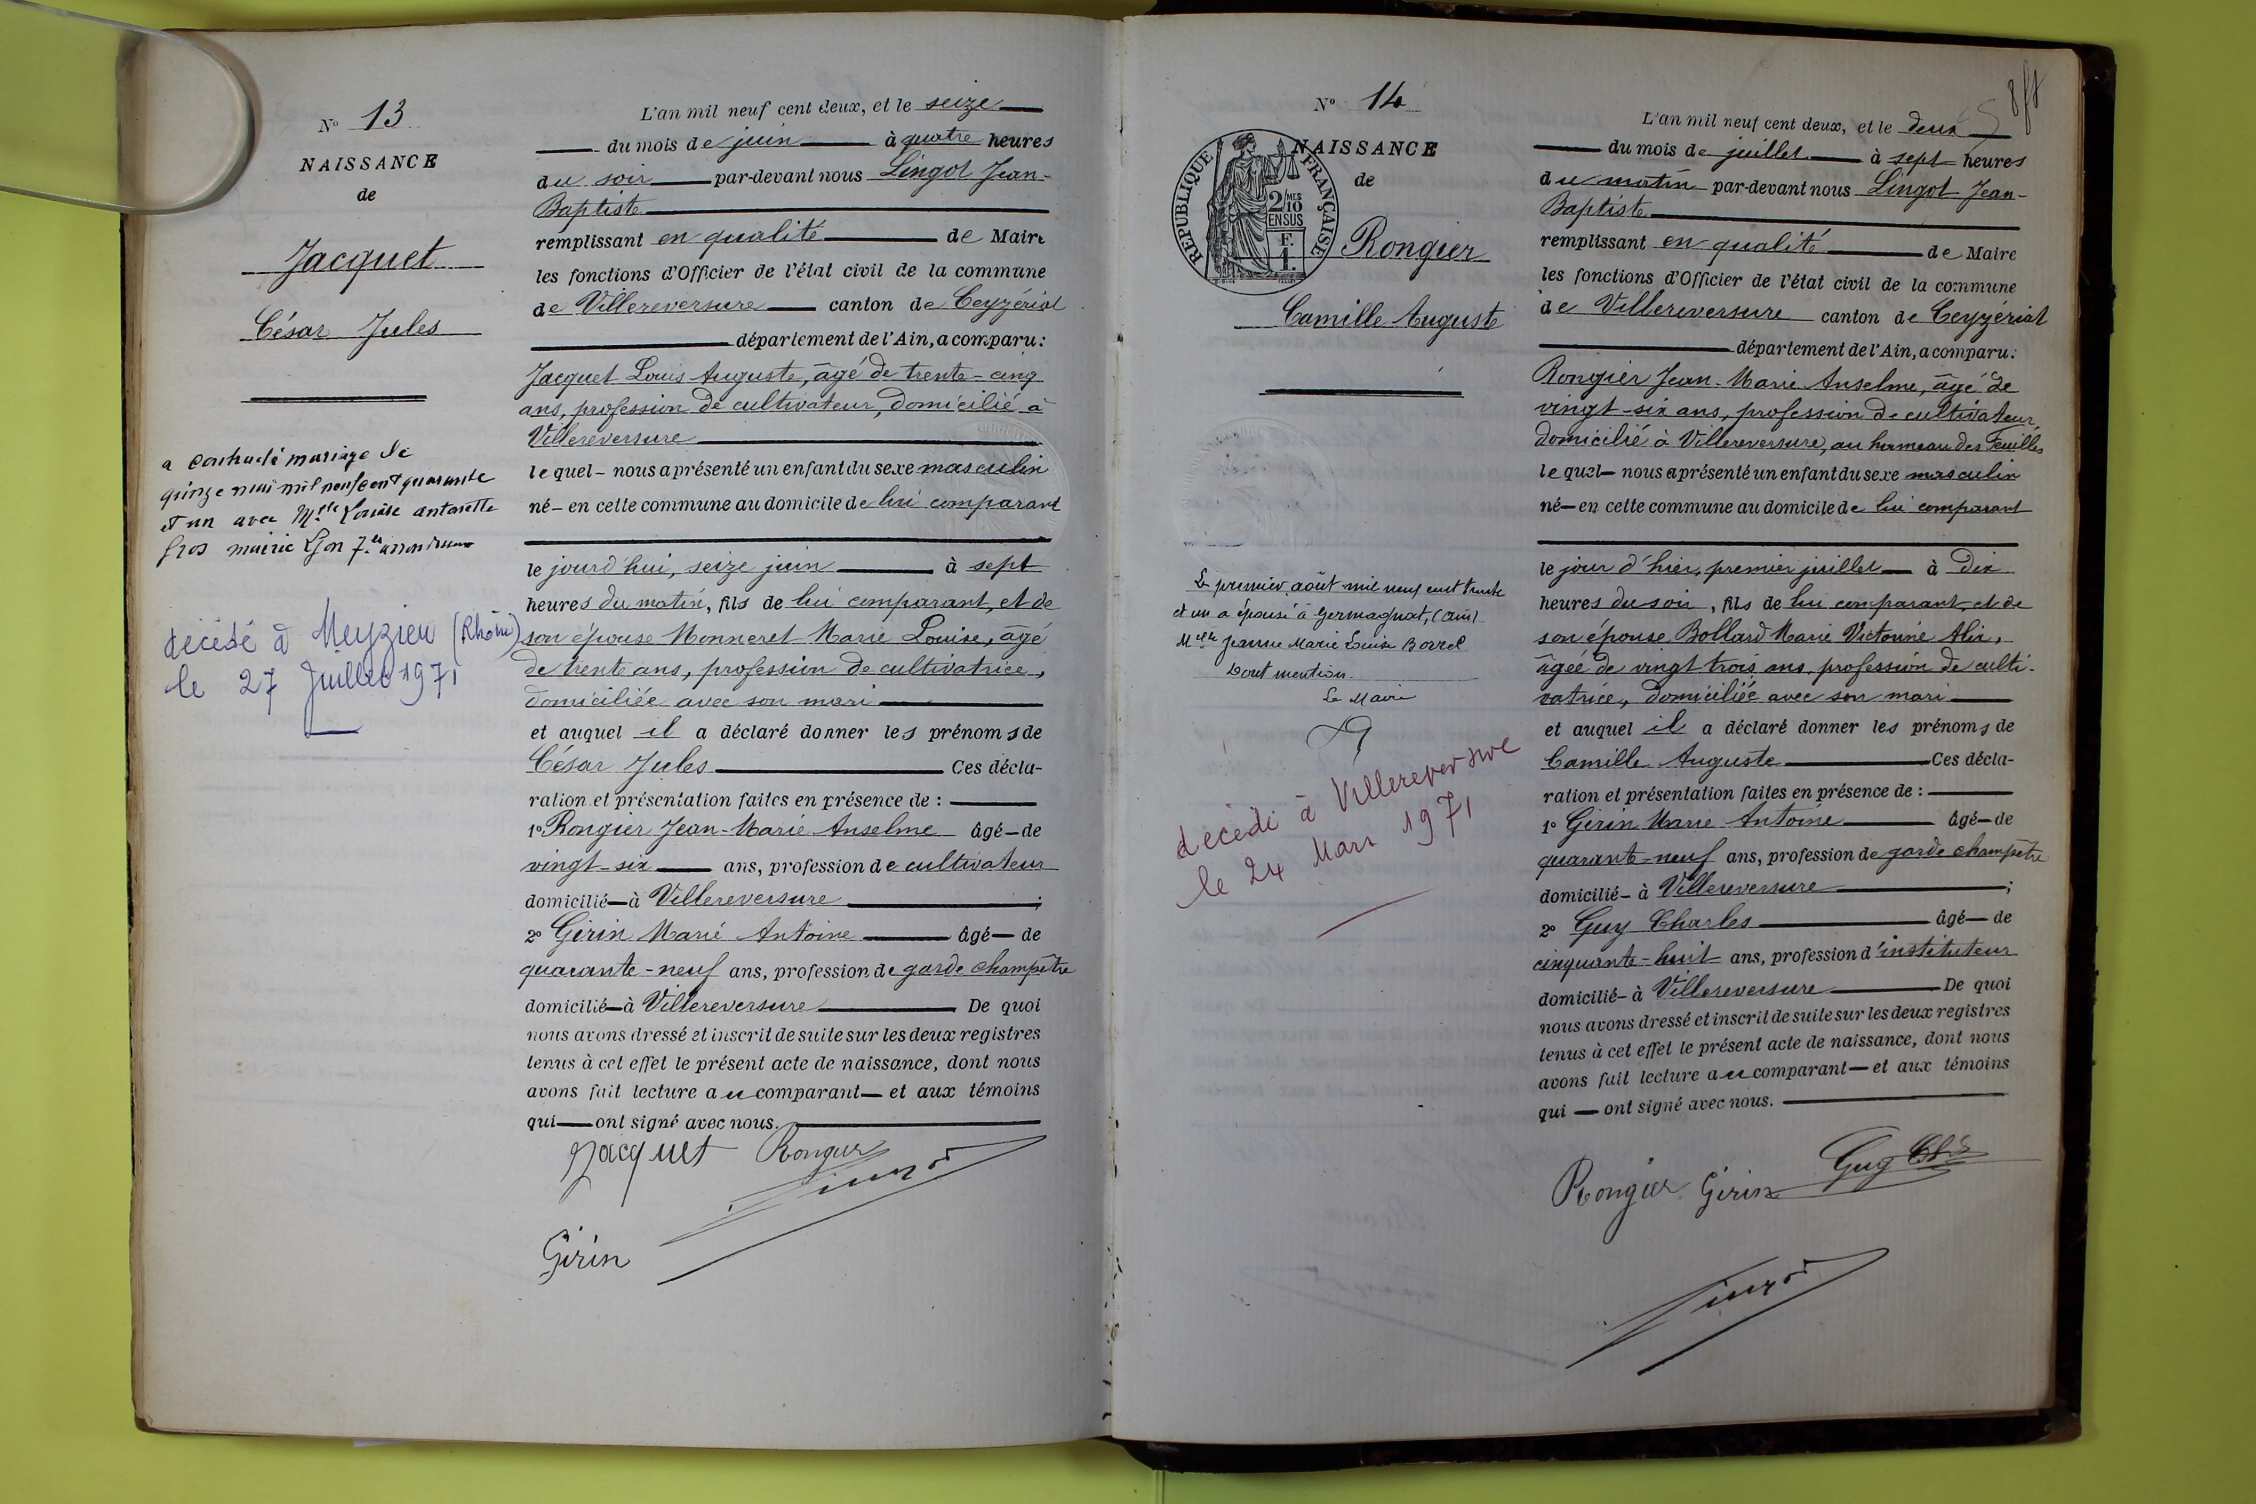 N° 13
NAISSANCE
de
Jacquet
César Jules
a contracté mariage le
quinze mai mil neuf cent quarante
et un avec Mlle Louise Antoinette
Gros mairie Lyon 7e arrondissement
décédé à Meyzieu (Rhône)
le 27 Juillet 1971
L'an mil neuf cent deux, et le seize
du mois de juin à quatre heures
du soir par-devant nous Lingot Jean-
Baptiste
remplissant en qualité de Maire
les fonctions d'Officier de l'état civil de la commune
de Villereversure canton de Ceyzériat
département de l'Ain, a comparu:
Jacquet Louis Auguste, âgé de trente-cinq
ans, profession de cultivateur, domicilié à
Villereversure
lequel - nous a présenté un enfant du sexe masculin
né - en cette commune au domicile de lui comparant
le jourd'hui, seize juin à sept
heures du matin, fils de lui comparant, et de
son épouse Monneret Marie Louise, âgé
de trente ans, profession de cultivatrice,
domiciliée avec son mari
et auquel il a déclaré donner les prénoms de
César Jules Ces décla-
ration et présentation faites en présence de :
1° Rongier Jean-Marie Anselme âgé - de
vingt-six ans, profession de cultivateur
domicilié - à Villereversure ;
2° Girin Marie Antoine âgé - de
quarante-neuf ans, profession de garde champêtre
domicilié - à Villereversure De quoi
nous avons dressé et inscrit de suite sur les deux registres
tenus à cet effet le présent acte de naissance, dont nous
avons fait lecture au comparant - et aux témoins
qui - ont signé avec nous.
Jacquet Rongier
Lingot
Girin
8
N° 14
NAISSANCE
de
RÉPUBLIQUE FRANÇAISE
2/10 MES
EN SUS
F.
1.
Rongier
Camille Auguste
Le premier août mil neuf cent trente
et un a épousé à Germagnat, (Ain)
Melle Jeanne Marie Louise Borrel
Dont mention.
Le Maire
décédé à Villereversure
le 24 Mars 1971
L'an mil neuf cent deux, et le deux
du mois de juillet à sept heures
du matin par-devant nous Lingot Jean-
Baptiste
remplissant en qualité de Maire
les fonctions d'Officier de l'état civil de la commune
de Villereversure canton de Ceyzériat
département de l'Ain, a comparu:
Rongier Jean-Marie Anselme, âgé de
vingt-six ans, profession de cultivateur,
domicilié à Villereversure, au hameau des Feuilles
lequel - nous a présenté un enfant du sexe masculin
né - en cette commune au domicile de lui comparant
le jour d'hier, premier juillet à dix
heures du soir, fils de lui comparant, et de
son épouse Bollard Marie Victorine Alix,
âgée de vingt trois ans, profession de culti-
vatrice, domiciliée avec son mari
et auquel il a déclaré donner les prénoms de
Camille Auguste Ces décla-
ration et présentation faites en présence de :
1° Girin Marie Antoine âgé - de
quarante-neuf ans, profession de garde champêtre
domicilié - à Villereversure ;
2° Guy Charles âgé - de
cinquante-huit ans, profession d'instituteur
domicilié - à Villereversure De quoi
nous avons dressé et inscrit de suite sur les deux registres
tenus à cet effet le présent acte de naissance, dont nous
avons fait lecture au comparant - et aux témoins
qui - ont signé avec nous.
Guy Chs
Rongier Girin
Lingot